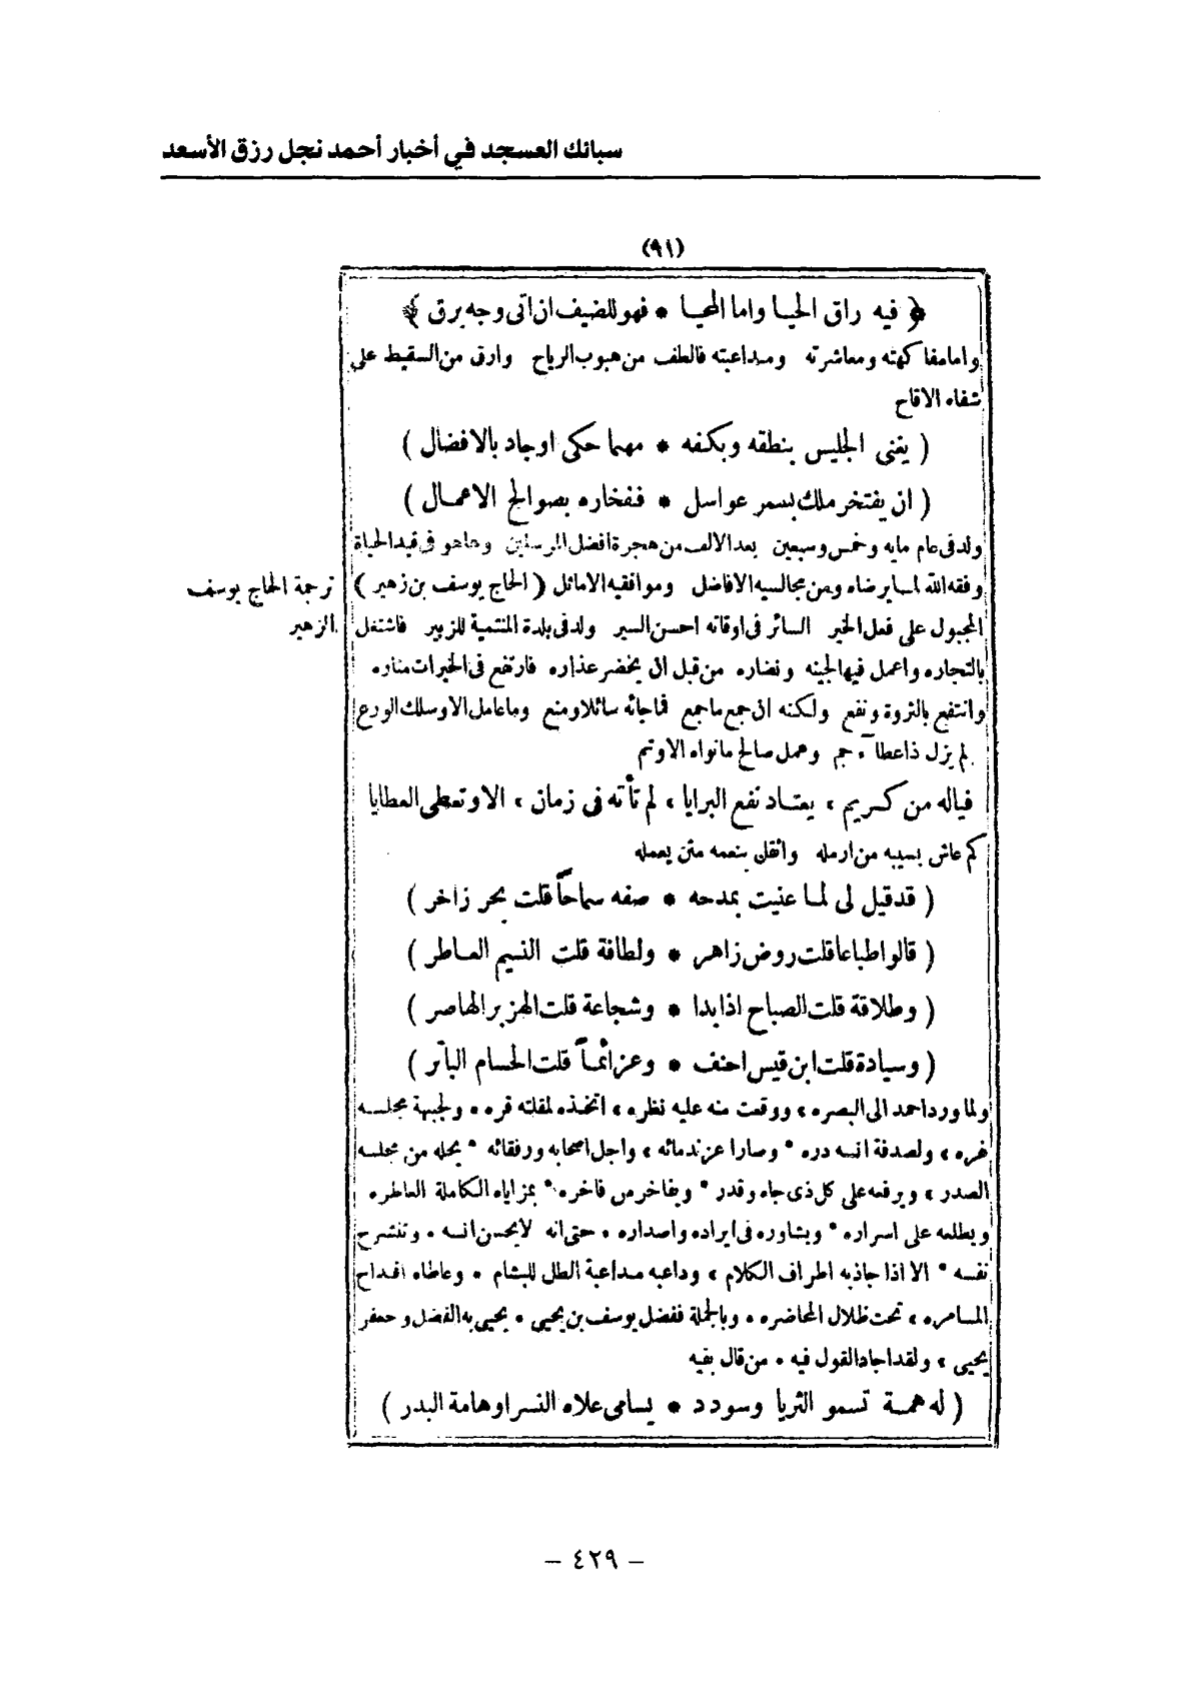 سبائك العسجد في أخبار أحمد نجل رزق الأسعد
(٩١)
﴿ فيه راق الحيا واما المحيا * فهو للضيف ان اتى وجه برق ﴾
واما مفاكهته ومعاشرته ومداعبته فالطف من هبوب الرياح وارق من السقيط على
شفاه الاقاح
( يغنى الجليس بنطقه وبكفه * مهما حكى اوجاد بالافضال )
( ان يفتخر ملك بسمر عواسل * ففخاره بصوالح الاعمال )
ولد فى عام مايه وخمس وسبعين بعد الالف من هجرة افضل المرسلين وهاهو فى قيد الحياة
وفقه الله لما يرضاه ومن مجالسيه الافاضل وموافقيه الاماثل ( الحاج يوسف بن زهير )
ترجمة الحاج يوسف
الزهير
المجبول على فعل الخير السائر فى اوقاته احسن السير ولد فى بلدة المنتمية للزبير فاشتغل
بالتجاره واعمل فيها لجينه ونضاره من قبل ان يخضر عذاره فارتفع فى الخيرات مناره
وانتفع بالثروة ونفع ولكنه ان جمع ما جمع فما جائه سائلا ومنع وما عامل الا وسلك الورع
لم يزل ذا عطآء جم وعمل صالح ما نواه الا وتم
فياله من كريم ، يعتاد نفع البرايا ، لم تأته فى زمان ، الا وتعطى العطايا
كم عاش بسيبه من ارمله واثقل بنعمه متن يعمله
( قد قيل لى لما عنيت بمدحه * صفه سماحاً قلت بحر زاخر )
( قالوا طباعا قلت روض زاهر * ولطافة قلت النسيم العاطر )
( وطلاقة قلت الصباح اذا بدا * وشجاعة قلت الهزبر الهاصر )
( وسيادة قلت ابن قيس احنف * وعزائماً قلت الحسام الباتر )
ولما ورد احمد الى البصره ، ووقعت منه عليه نظره ، اتخذه لمقلته قره ، ولجبهة مجلسه
غره ، ولصدفة انسه دره * وصار اعز ندمائه ، واجل اصحابه ورفقائه * يحله من مجلسه
الصدر ، ويرفعه على كل ذى جاه وقدر * ويفاخر من فاخره * بمزاياه الكاملة العاطره
ويطلعه على اسراره * ويشاوره فى ايراده واصداره ، حتى انه لا يحسن انسه ، وتنشرح
نفسه * الا اذا جاذبه اطراف الكلام ، وداعبه مداعبة الطل للبشام ، وعاطاه اقداح
المسامره ، تحت ظلال المحاضره ، وبالجملة ففضل يوسف بن يحيى ، يحيى به الفضل وجعفر
يحيى ، ولقد اجاد القول فيه ، من قال بفيه
( له همة تسمو الثريا وسودد * يسامى علاه النسر اوهامة البدر )
– ٤٢٩ –